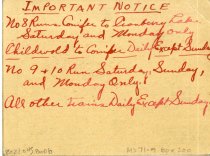 IMPORTANT NOTICE
No 8 Runs Conifer to Cranberry Lake
Saturday and Monday Only
Childwold to Conifer Daily Except Sunday
No 9 + 10 Run Saturday, Sunday,
and Monday Only.
All other trains Daily Except Sunday
MS 71-9 box 200